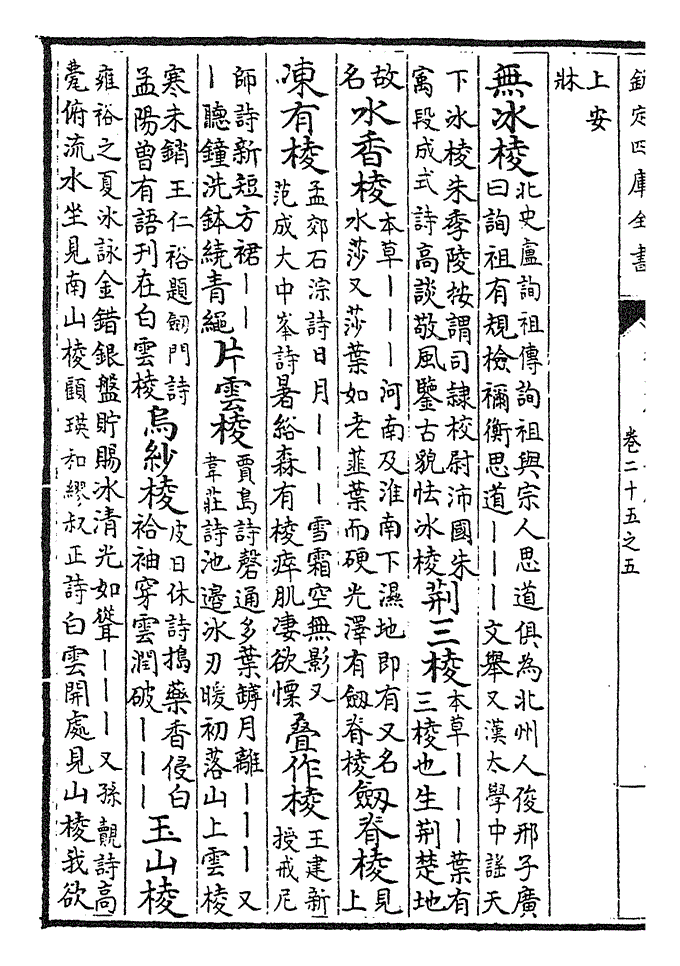 欽定四庫全書
卷二十五之五
上安
牀
無冰棱 北史盧詢祖傳詢祖與宗人思道俱為北州人俊邢子廣
曰詢祖有規檢禰衡思道丨丨丨文舉又漢太學中謡天
下冰棱朱季陵按謂司隸校尉沛國朱
㝢段成式詩高談敬風鑒古貌怯冰棱 荆三棱 本草丨丨丨葉有
三棱也生荆楚地
故
名 水香棱 本草丨丨丨河南及淮南下濕地即有又名
水莎又莎葉如老韭葉而硬光澤有劒脊棱 劒脊棱 見
上
凍有棱 孟郊石淙詩日月丨丨丨雪霜空無影又
范成大中峯詩暑綌森有棱瘁肌凄欲慄 疊作棱 王建新
授戒尼
師詩新短方裙丨丨
丨聽鐘洗鉢繞青繩 片雲棱 賈島詩磬通多葉罅月離丨丨丨又
韋莊詩池邉冰刃暖初落山上雲棱
寒未銷王仁裕題劒門詩
孟陽曾有語刊在白雲棱 烏紗棱 皮日休詩搗藥香侵白
袷袖穿雲潤破丨丨丨 玉山棱
雍裕之夏冰詠金錯銀盤貯賜冰清光如聳丨丨丨又孫覿詩高
甍俯流水坐見南山棱顧瑛和繆叔正詩白雲開處見山棱我欲